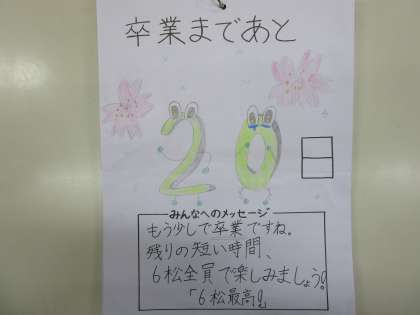 卒業まであと
20日
みんなへのメッセージ
もう少しで卒業ですね。
残りの短い時間、
6松全員で楽しみましょう!
「6松最高!」